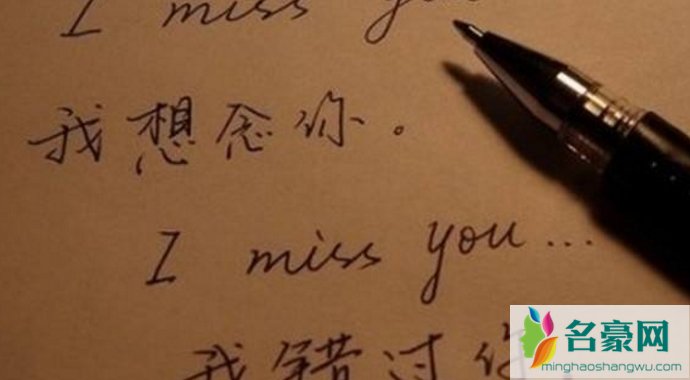 I miss you
我想念你。
I miss you...
我错过你
名豪网
minghaoshangwu.com